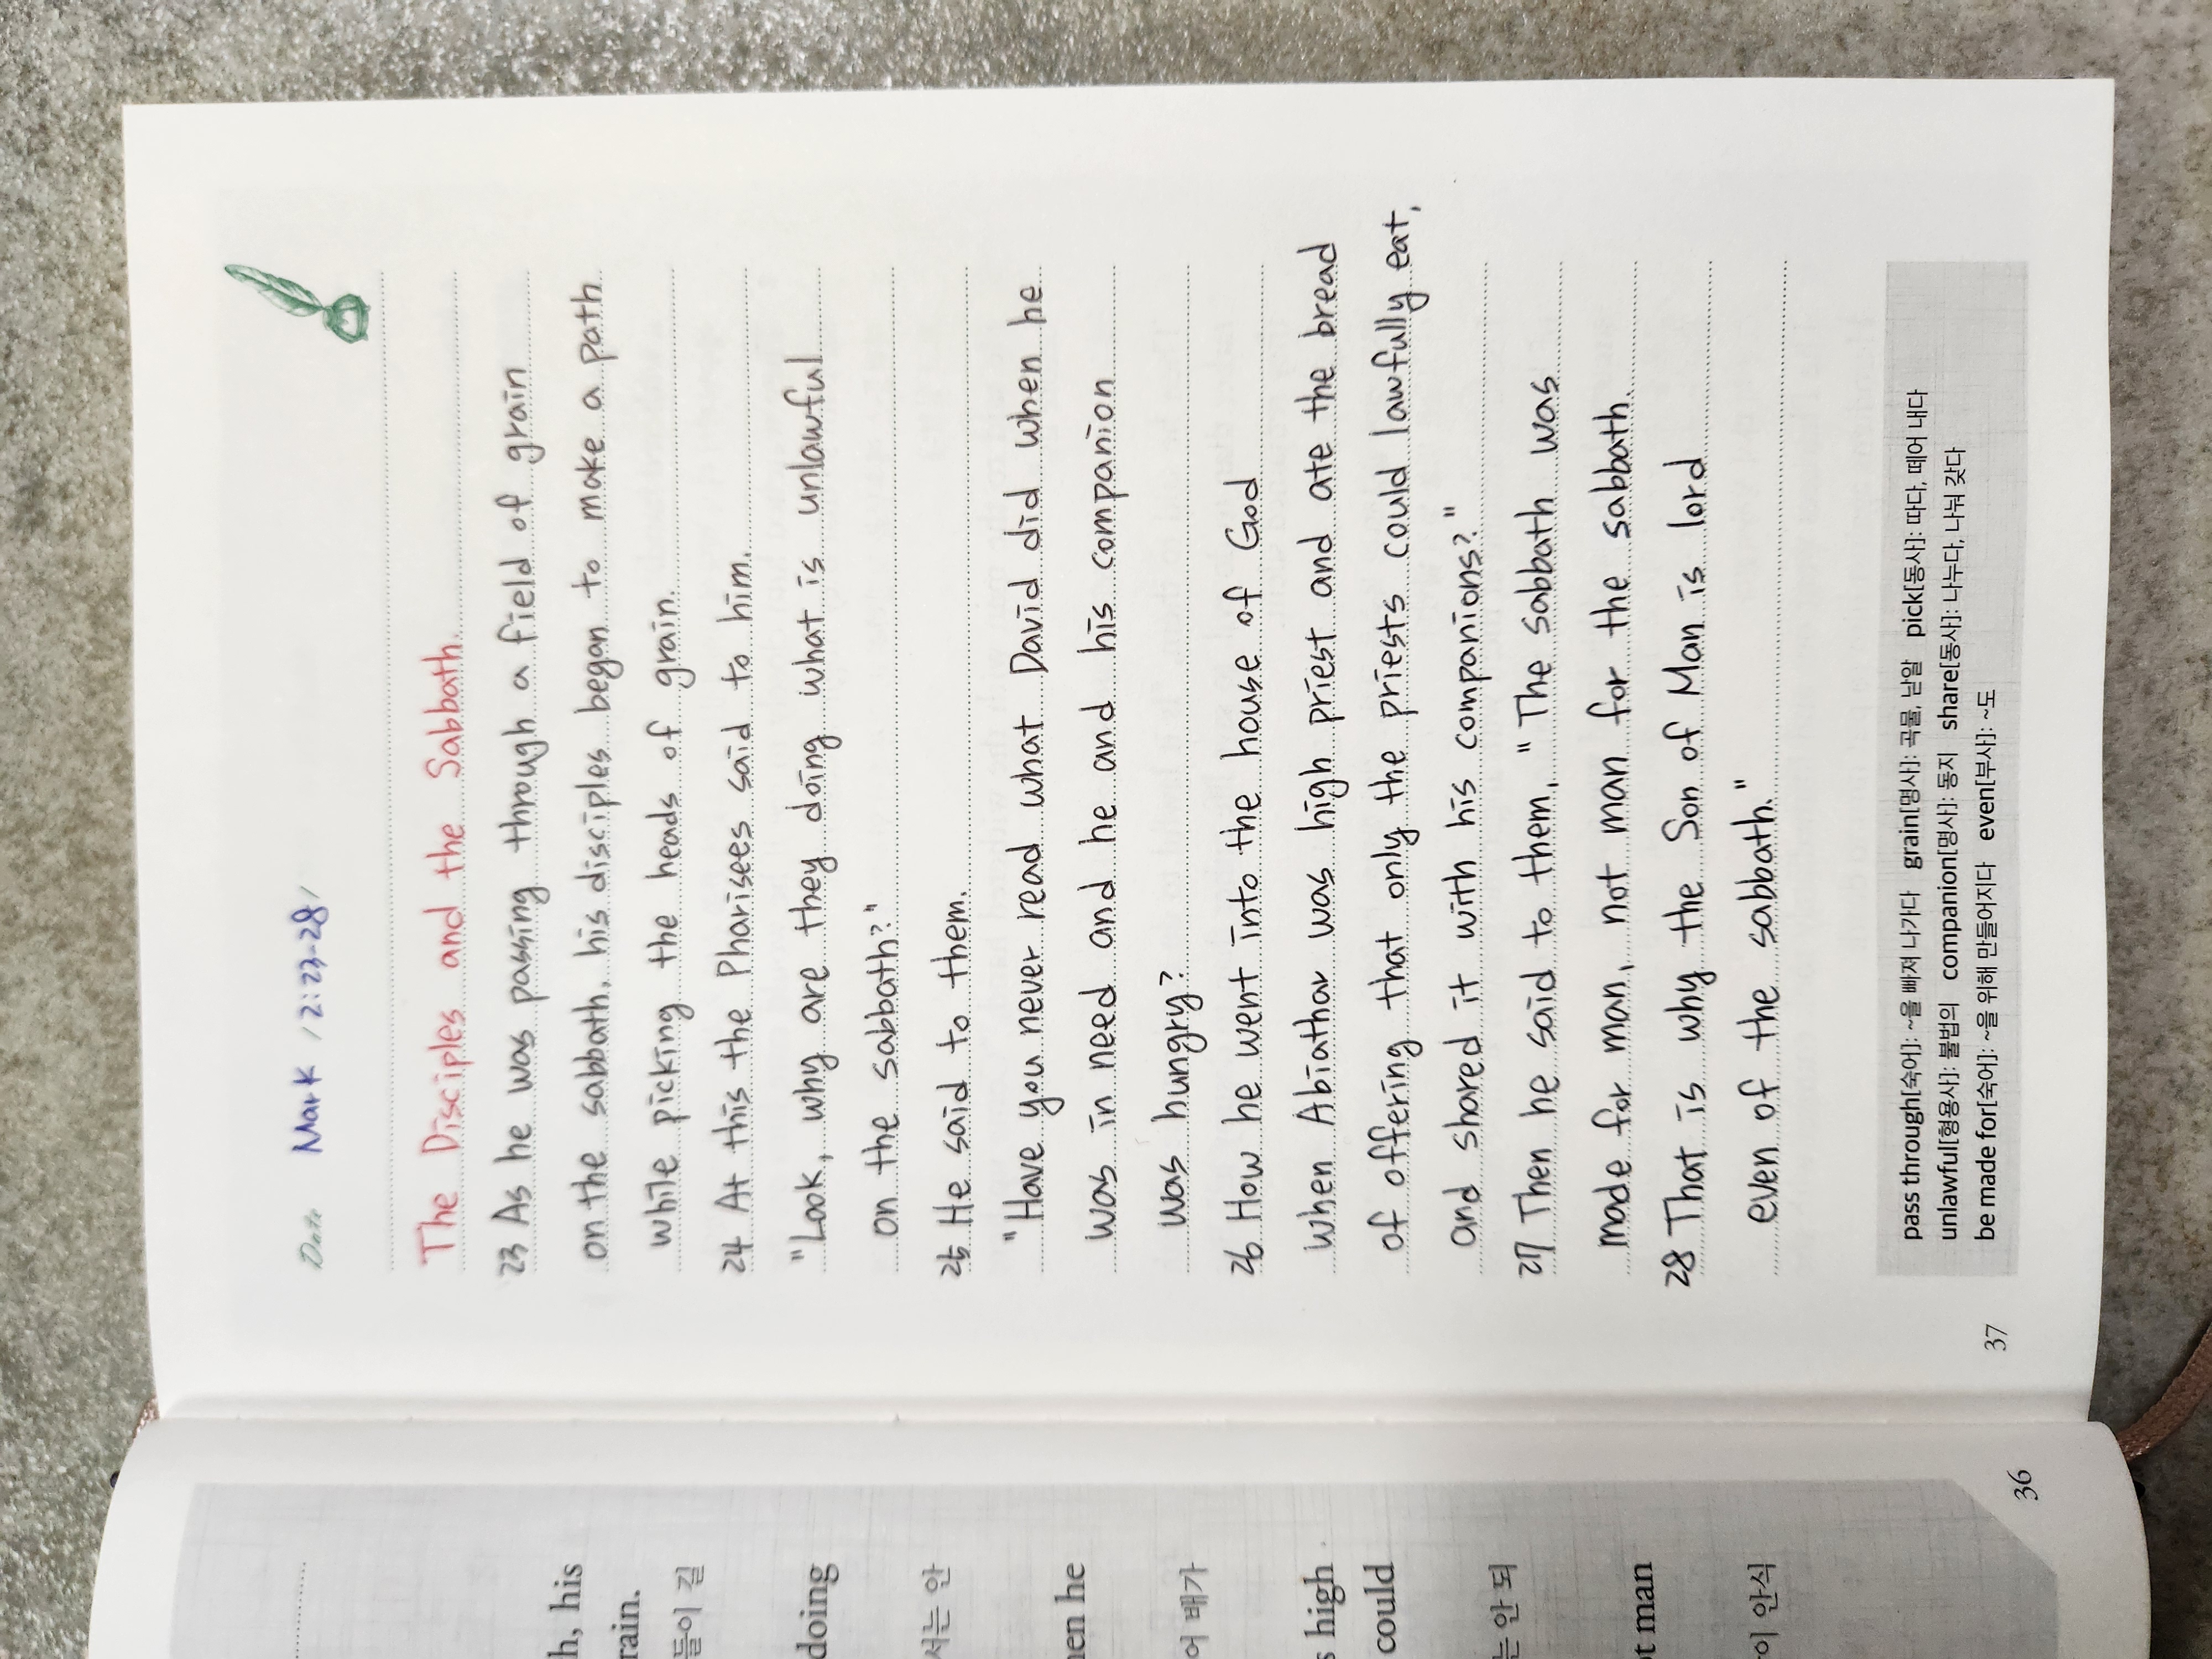 Date Mark / 2:23-28 /
The Disciples and the Sabbath.
23 As he was passing through a field of grain
on the sabbath, his disciples began to make a path
while picking the heads of grain.
24 At this the Pharisees said to him,
"Look, why are they doing what is unlawful
on the sabbath?"
25 He said to them,
"Have you never read what David did when he
was in need and he and his companion
was hungry?
26 How he went into the house of God
when Abiathar was high priest and ate the bread
of offering that only the priests could lawfully eat,
and shared it with his companions?"
27 Then he said to them, "The sabbath was
made for man, not man for the sabbath.
28 That is why the Son of Man is lord
even of the sabbath."
pass through[숙어]: ~을 빠져 나가다 grain[명사]: 곡물, 낟알 pick[동사]: 따다, 떼어 내다
unlawful[형용사]: 불법의 companion[명사]: 동지 share[동사]: 나누다, 나눠 갖다
be made for[숙어]: ~을 위해 만들어지다 even[부사]: ~도
37
h, his
rain.
들이 길
doing
서는 안
en he
어 배가
s high
could
는 안 되
t man
이 안식
36